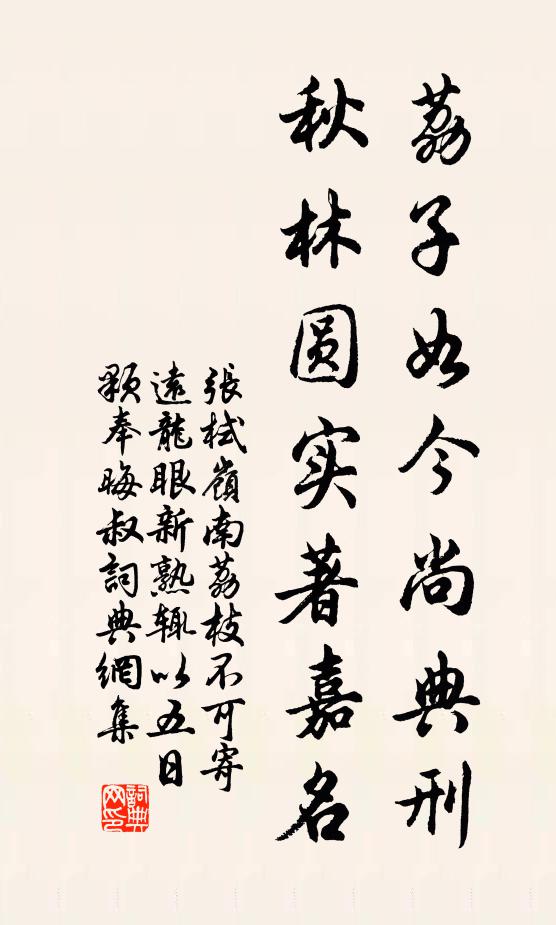 荔子如今尚典刑
秋林圆实著嘉名
張栻嶺南荔枝不可寄
遠龍眼新熟輒以五日
顆奉晦叔詞典網集
詞典
网印